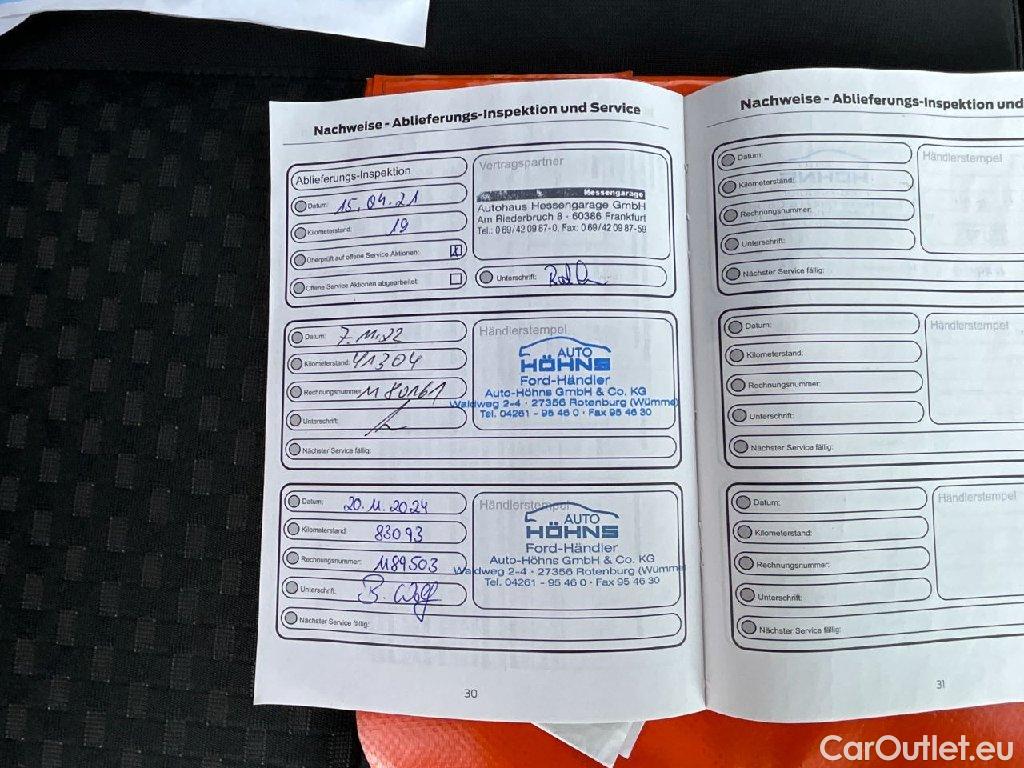 Nachweise - Ablieferungs-Inspektion und Service
Ablieferungs-Inspektion
Datum: 15.04.21
Kilometerstand: 19
Überprüft auf offene Service Aktionen: X
Offene Service Aktionen abgearbeitet:
Vertragspartner
Messengarage
Autohaus Hessengarage GmbH
Am Riederbruch 8 - 60386 Frankfurt
Tel.: 0 69/42 09 87-0, Fax: 0 69/42 09 87-59
Unterschrift:
Datum: 7.11.22
Kilometerstand: 41304
Rechnungsnummer: 1180161
Unterschrift:
Nächster Service fällig:
Händlerstempel
AUTO
HÖHNS
Ford-Händler
Auto-Höhns GmbH & Co. KG
Waldweg 2-4 · 27356 Rotenburg (Wümme)
Tel. 04261 - 95 46 0 · Fax 95 46 30
Datum: 20.11.2024
Kilometerstand: 83093
Rechnungsnummer: 1189503
Unterschrift: B. Wolf
Nächster Service fällig:
Händlerstempel
AUTO
HÖHNS
Ford-Händler
Auto-Höhns GmbH & Co. KG
Waldweg 2-4 · 27356 Rotenburg (Wümme
Tel. 04261 - 95 46 0 · Fax 95 46 30
30
Nachweise - Ablieferungs-Inspektion und
Datum:
Kilometerstand:
Rechnungsnummer:
Unterschrift:
Nächster Service fällig:
Händlerstempel
Datum:
Kilometerstand:
Rechnungsnummer:
Unterschrift:
Nächster Service fällig:
Händlerstempel
Datum:
Kilometerstand:
Rechnungsnummer:
Unterschrift:
Nächster Service fällig:
Händlerstempel
31
CarOutlet.eu